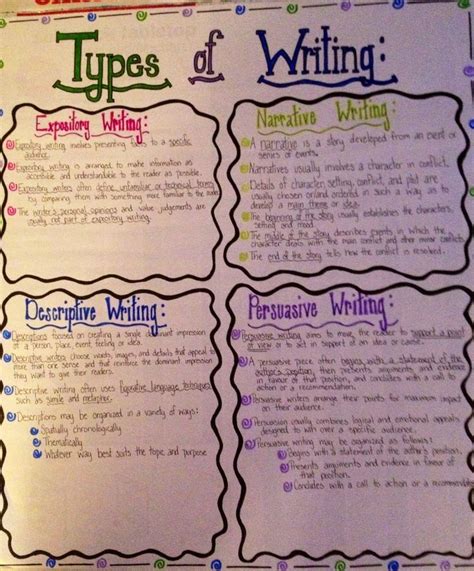 Types of Writing:
Expository Writing:
Expository writing involves presenting facts to a specific
audience.
Expository writing is arranged to make information as
accessible and understandable to the reader as possible.
Expository writers often define unfamiliar or technical terms
by comparing them with something more familiar to the reader.
The writer's personal opinions and value judgements are
usually not part of expository writing.
Narrative Writing:
A narrative is a story developed from an event or
series of events.
Narratives usually involve a character in conflict.
Details of character, setting, conflict, and plot are
usually chosen and ordered in such a way as to
develop a main theme or idea.
The beginning of the story usually establishes the characters,
setting and mood.
The middle of the story describes events in which the
character deals with the main conflict and other minor conflicts.
The end of the story tells how the conflict is resolved.
Descriptive Writing:
Descriptions focused on creating a single dominant impression
of a person, place, event, feeling or idea.
Descriptive writers choose words, images, and details that appeal to
more than one sense and that reinforce the dominant impression
they want to give their readers.
Descriptive writing often uses figurative language techniques
such as simile and metaphor.
Descriptions may be organized in a variety of ways:
Spatially chronologically
Thematically
Whatever way best suits the topic and purpose
Persuasive Writing:
Persuasive writing aims to move the reader to support a point
of view or to act in support of an idea or cause.
A persuasive piece often begins with a statement of the
author's position, then presents arguments and evidence
in favour of that position, and concludes with a call to
action or a recommendation.
Persuasive writers arrange their points for maximum impact
on their audience.
Persuasion usually combines logical and emotional appeals
designed to with over a specific audience.
Persuasive writing may be organized as follows:
Begins with a statement of the author's position.
Presents arguments and evidence in favour of
that position.
Concludes with a call to action or a recommendation